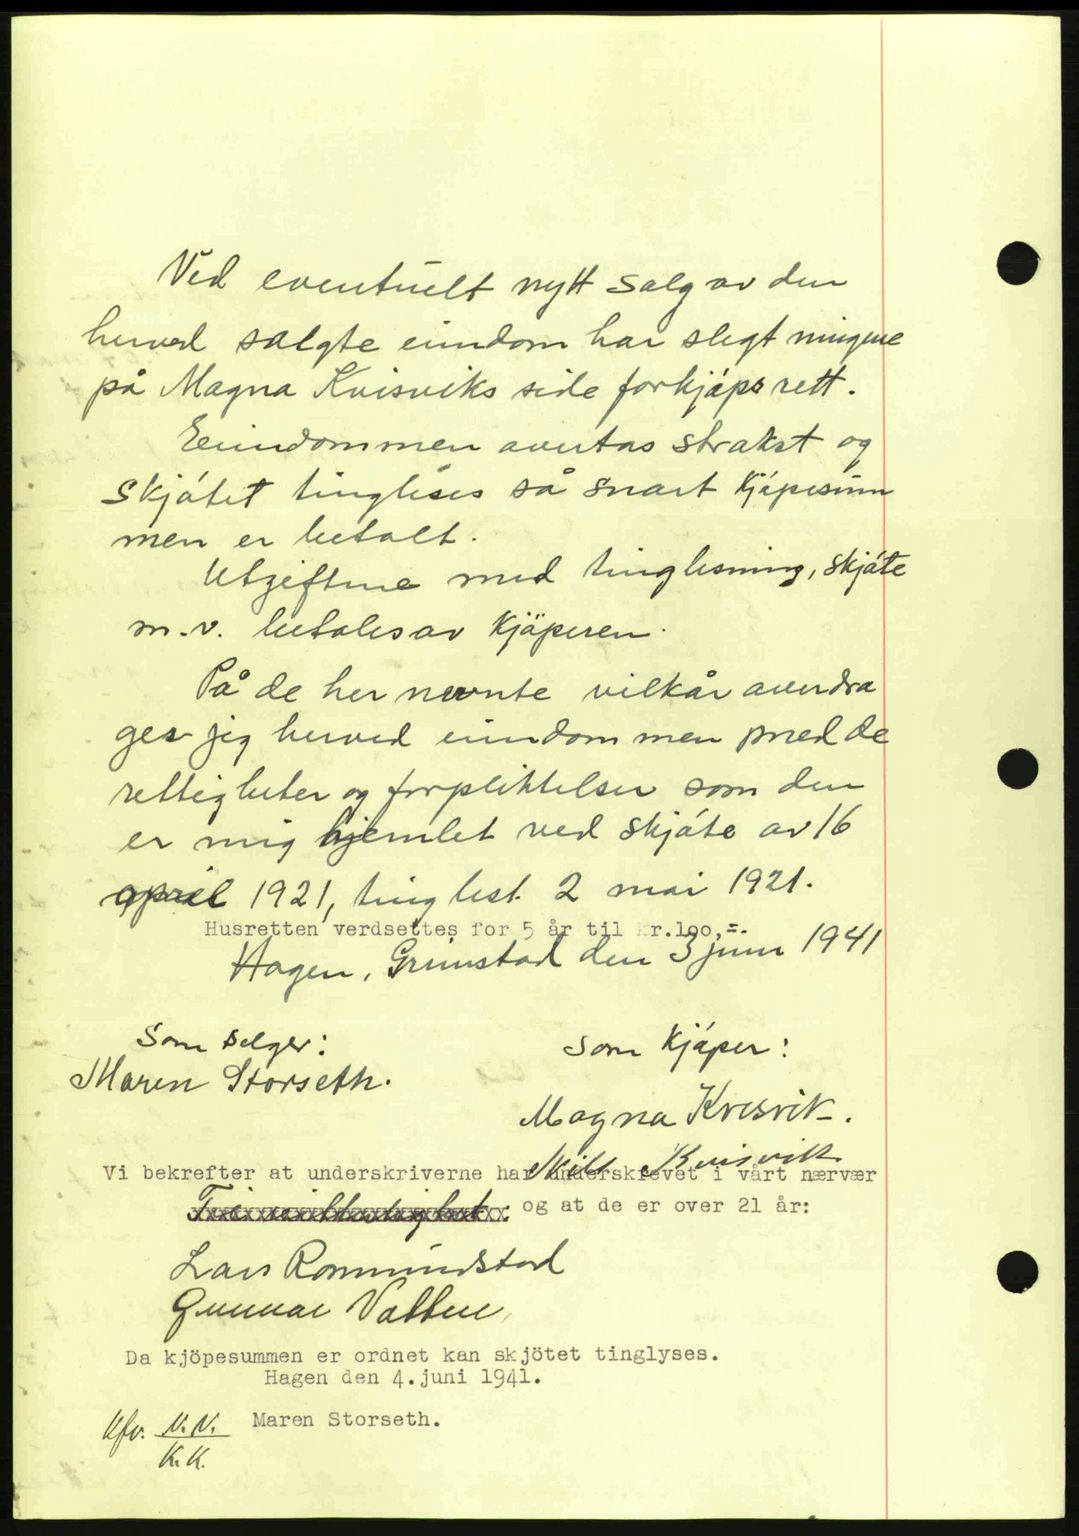 Ved eventuelt nytt salg av den
herved salgte eiendom har slegtningene
på Magna Kvisviks side forkjøpsrett.
Eiendommen overtas strakst og
skjøtet tingleses så snart kjøpesum
men er betalt.
Utgiftene med tinglesning, skjøte
m.v. betales av kjøperen.
På de her nevnte vilkår averdra
ges jeg herved eiendommen med de
rettigheter og forpliktelser som den
er mig hjemlet ved skjøte av 16
april 1921, tinglest 2 mai 1921.
Husretten verdsettes for 5 år til kr.100,=.
Hagen, Grimstad den 3 juni 1941
Som selger:
Som kjøper:
Maren Storseth.
Magna Kvisvik.
Kvisvik
Vi bekrefter at underskriverne har underskrevet i vårt nærvær
og at de er over 21 år:
Lars Romundstad
Gunnar Vatten
Da kjöpesummen er ordnet kan skjötet tinglyses.
Hagen den 4.juni 1941.
Maren Storseth.
Kfr. N.N.
K.K.